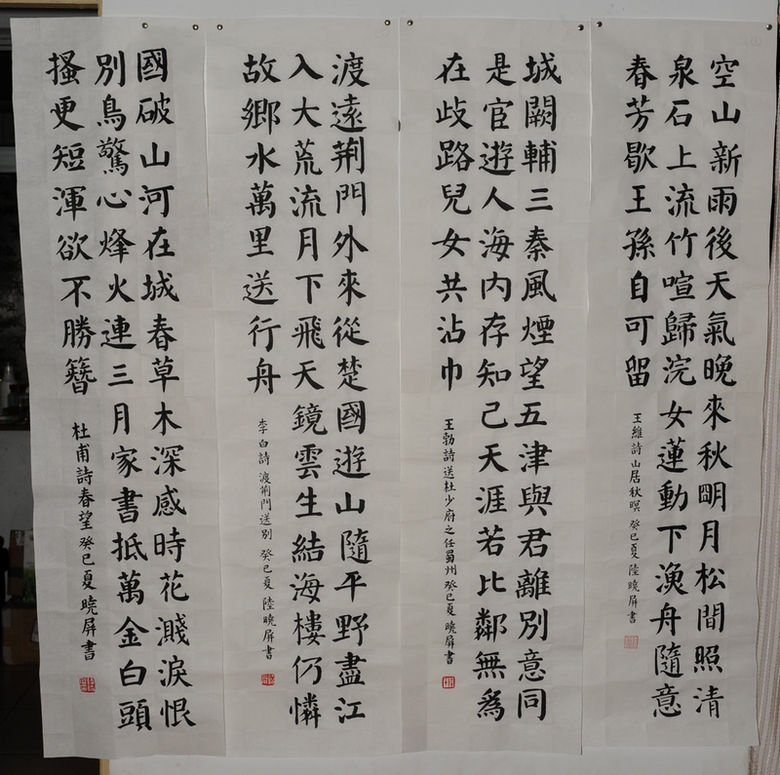 空山新雨後天氣晚來秋朙月松間照清
泉石上流竹喧歸浣女蓮動下漁舟隨意
春芳歇王孫自可留
王維詩 山居秋暝 癸巳夏 陸曉屏書
城闕輔三秦風煙望五津與君離別意同
是官遊人海内存知己天涯若比鄰無爲
在歧路兒女共沾巾
王勃詩送杜少府之任蜀州 癸巳夏 曉屏書
渡遠荆門外來從楚國遊山隨平野盡江
入大荒流月下飛天鏡雲生結海樓仍憐
故鄉水萬里送行舟
李白詩 渡荆門送別 癸巳夏 陸曉屏書
國破山河在城春草木深感時花濺淚恨
別鳥驚心烽火連三月家書抵萬金白頭
搔更短渾欲不勝簪
杜甫詩春望 癸巳夏 曉屏書